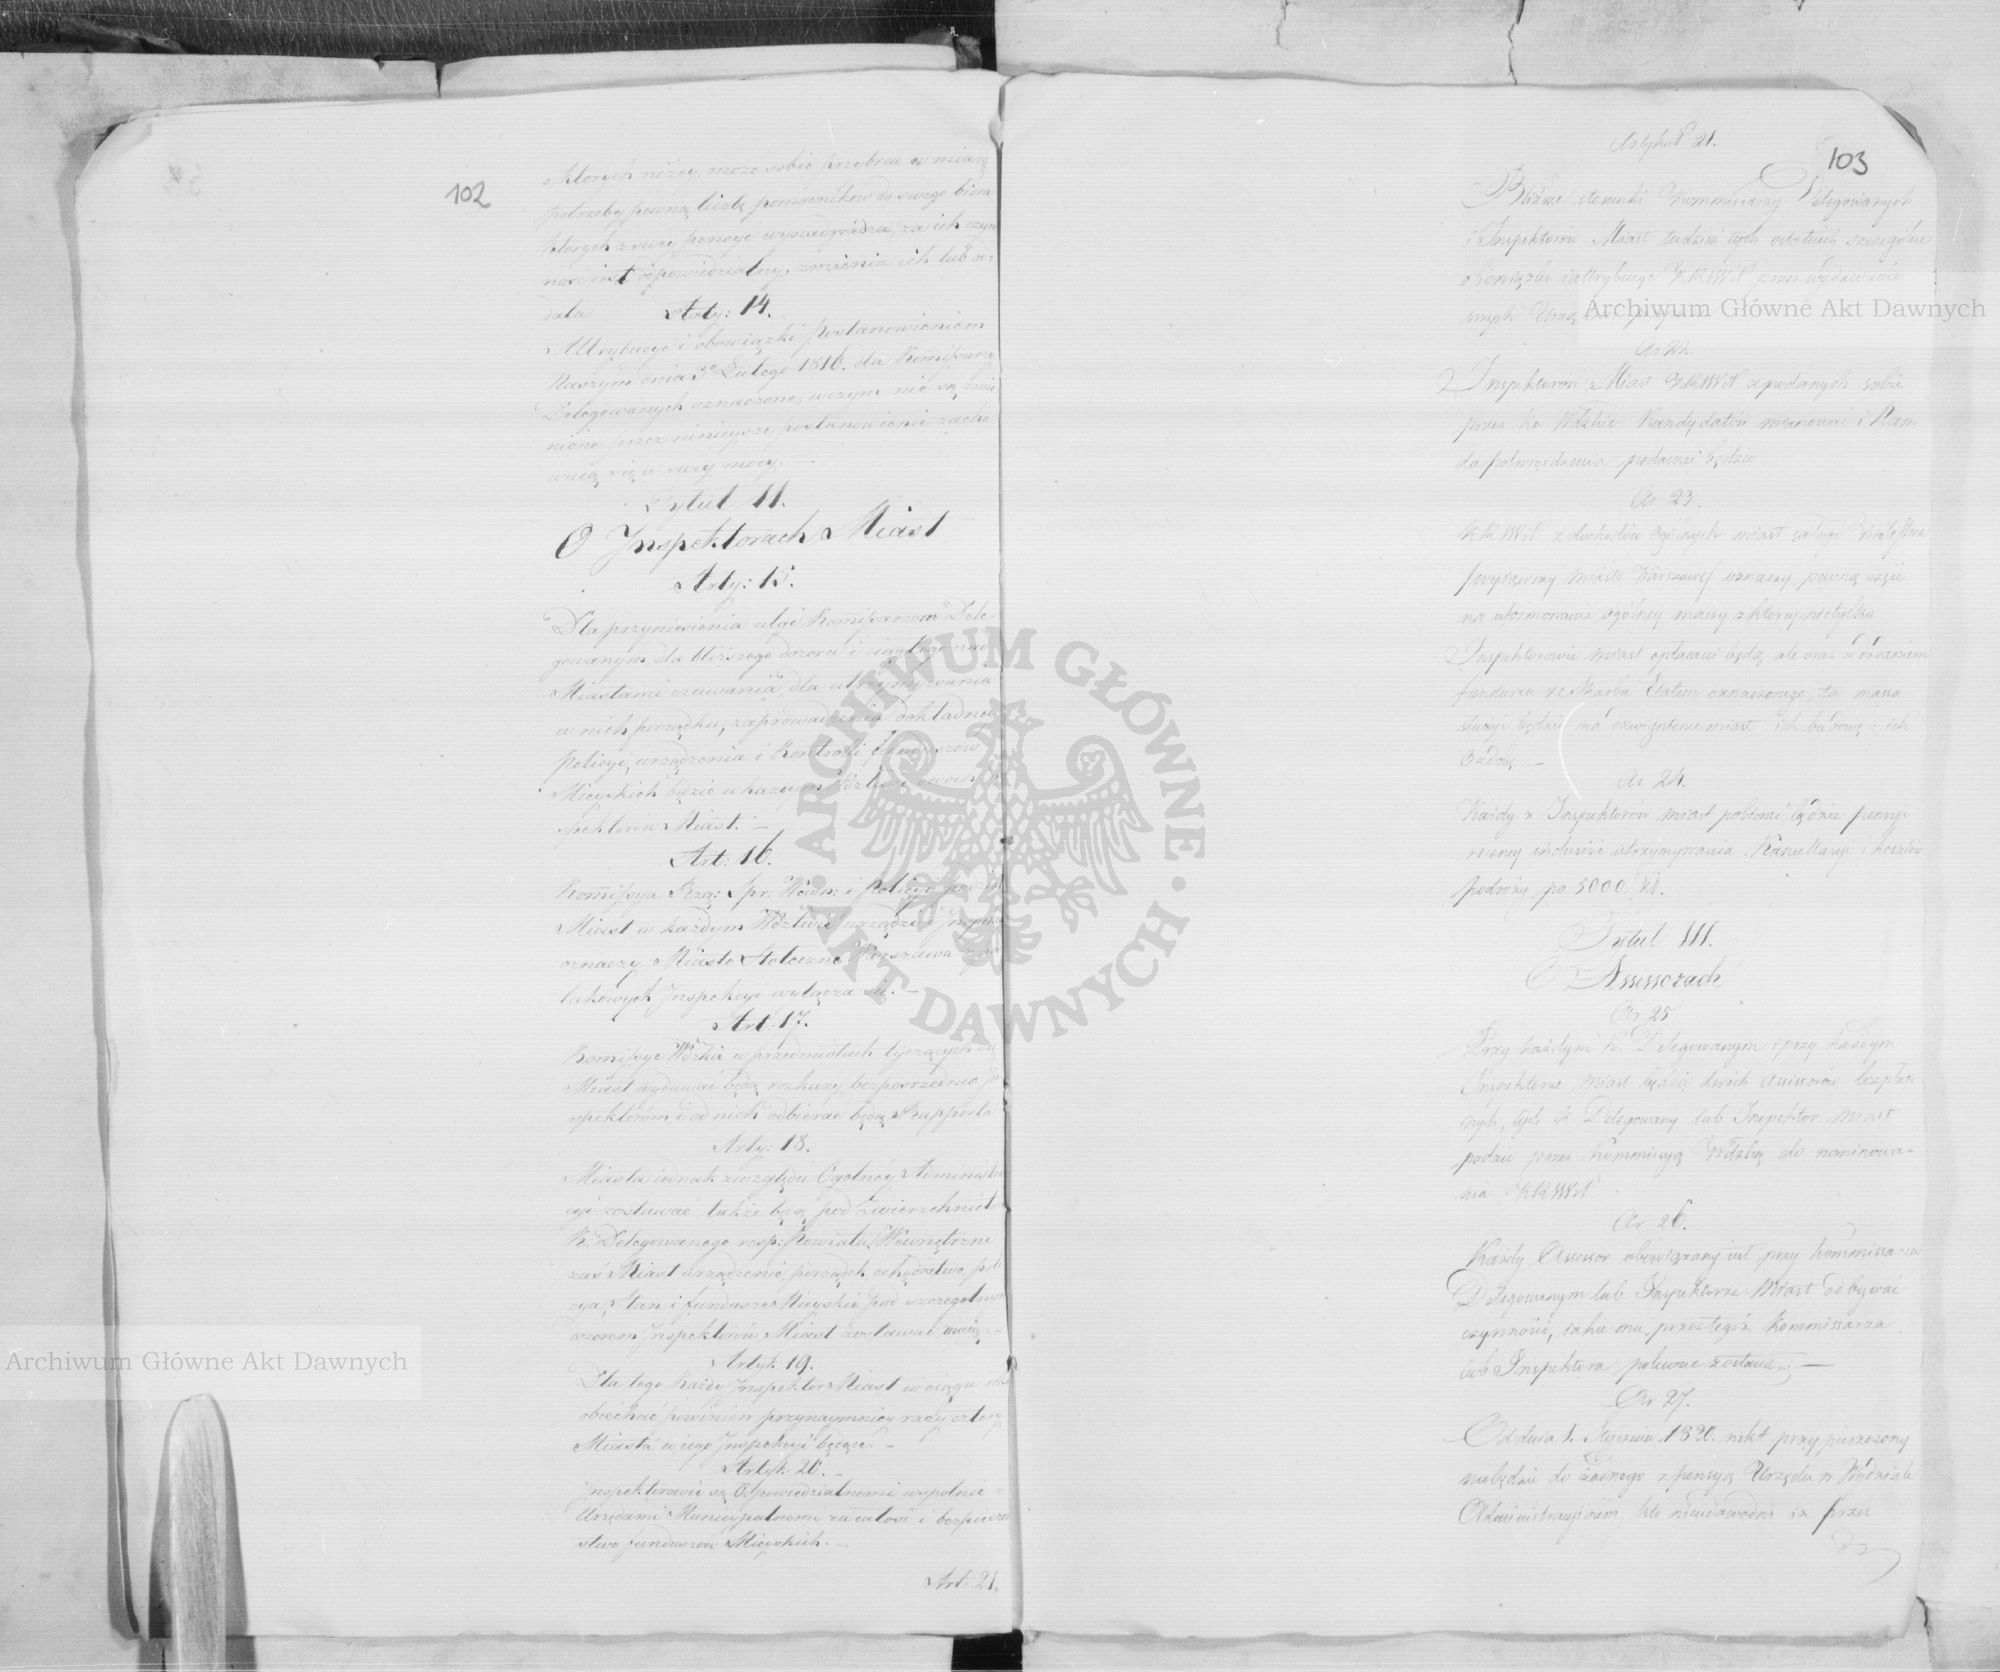 102
których niżey, może sobie przybrać w miarę
potrzeby pewną liczbę pomocników do swego biora
których z swey pensyi wynadgradza, za ich czyn
ność iest odpowiedzialny, zmienia ich lub od=
dala
Arty: 14.
Attrybucye i obowiązki Postanowieniem
Naszym dnia 3o Lutego 1816. dla Kommissarzy
Delegowanych oznaczone, w czym nie są zmie
nione przez ninieysze postanowienie zacho
waią się w swey mocy. —
Tytuł II.
O Inspektorach Miast
Arty: 15.
Dla przyniesienia ulgi Kommissarzom Dele-
gowanym dla bliższego dozoru i ciągłego nad
Miastami czuwania, dla utrzymywania
w nich porządku, zaprowadzenia dokładney
Policyi, urządzenia i Kontroli funduszów
Mieyskich będzie w każdym Wdztwie dwóch In
spektorów Miast. —
Art: 16.
Kommissya Rzą: Spr: Wewn: i Policyi podział
Miast w każdym Wdztwie urządzi i Inspek
oznaczy. Miasto Stołeczne Warszawa z pod
takowych Inspekcyi wyłącza się. —
Art. 17.
Kommissye Wdzkie w przedmiotach tyczących się
Miast wydawać będą rozkazy bezpośrednio In
spektorom, i od nich odbierać będą Rapporta
Arty: 18.
Miasta iednak względu Ogólney Administra
cyi zostawać także będą pod Zwierzchnictwem
K. Delegowanego resp: Powiatu, Wewnętrzne
zaś Miast urządzenie, porządek, ochędóstwo, poli
cya, stan i fundusze Mieyskie pod szczególnym
dozorem Inspektorów Miast zostawać maią. —
Artyk: 19.
Dla tego Każdy Inspektor Miast w ciągu roku
obiechać powinien przynaymniey razy cztery
Miasta w iego Inspekcyi będące. —
Artyk: 20. —
Inspektorowie są Odpowiedzialnemi wspólnie z
Urzędami Municypalnemi za całość i bezpieczeń
stwo funduszów Mieyskich. —
Art: 21.
103
Artykuł 21.
Bliższe stosunki Kommissarzy Delegowanych
i Inspektorów Miast tudzież tych ostatnich szczególne
obowiązki i attrybucye KRSWiP przez wydawanie
Ar 22.
Inspektorów Miast KRSWiP z podanych sobie
przez Ko Wdzkie Kandydatów mianować i Nam
do potwierdzenia podawać będzie
Ar 23.
KRSWiP z dochodów ogólnych miast całego Królestwa
/wyiąwszy miasto Warszawę/ oznaczy pewną część
na uformowanie ogólney massy z którey nietylko
Inspektorowie miast opłacani będą ale oraz z dodaniem
funduszu ze Skarbu Etatem oznaczonego, ta massa
służyć będzie na dzwignienie miast ich budowę i ich
Ozdobę —
Ar 24.
Każdy z Inspektorów miast pobierać będzie pensyi
roczney inclusive utrzymywania Kancellaryi i kosztów
podróży po 5000. Zł.
Tytuł III.
O Assessorach
Ar 25
Przy każdym K. Delegowanym i przy każdym
Inspektorze miast będzie dwóch assessorów bezpłat
nych, tych K Delegowany lub Inspektor miast
podaie przez Kommissyą Wdzką do nominowa-
nia KRSWiP
Ar 26.
Każdy Assessor obowiązany iest przy Kommissarzu
Delegowanym lub Inspektorze Miast odbywać
czynności, iakie mu przez tegoż Kommissarza
lub Inspektora polecone zostaną. —
Ar 27.
Od dnia 1. Stycznia 1820. nikt przyięszczony
niebędzie do żadnego z pensyą Urzędu w Wydziale
Administracyinym, kto nieudowodni iż przez
Archiwum Główne Akt Dawnych
Archiwum Główne Akt Dawnych
ARCHIWUM GŁÓWNE AKT DAWNYCH